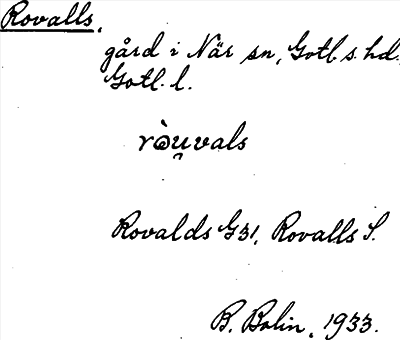 Rovalls,
gård i När sn, Gotl. s. hd.,
Gotl. l.
ròu̯vals
Rovalds G31, Rovalls S.
B. Bolin, 1933.